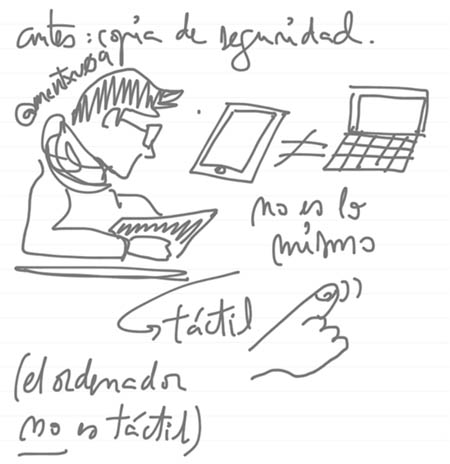 antes: copia de seguridad.
no es lo
mismo
táctil
(el ordenador
no es táctil)